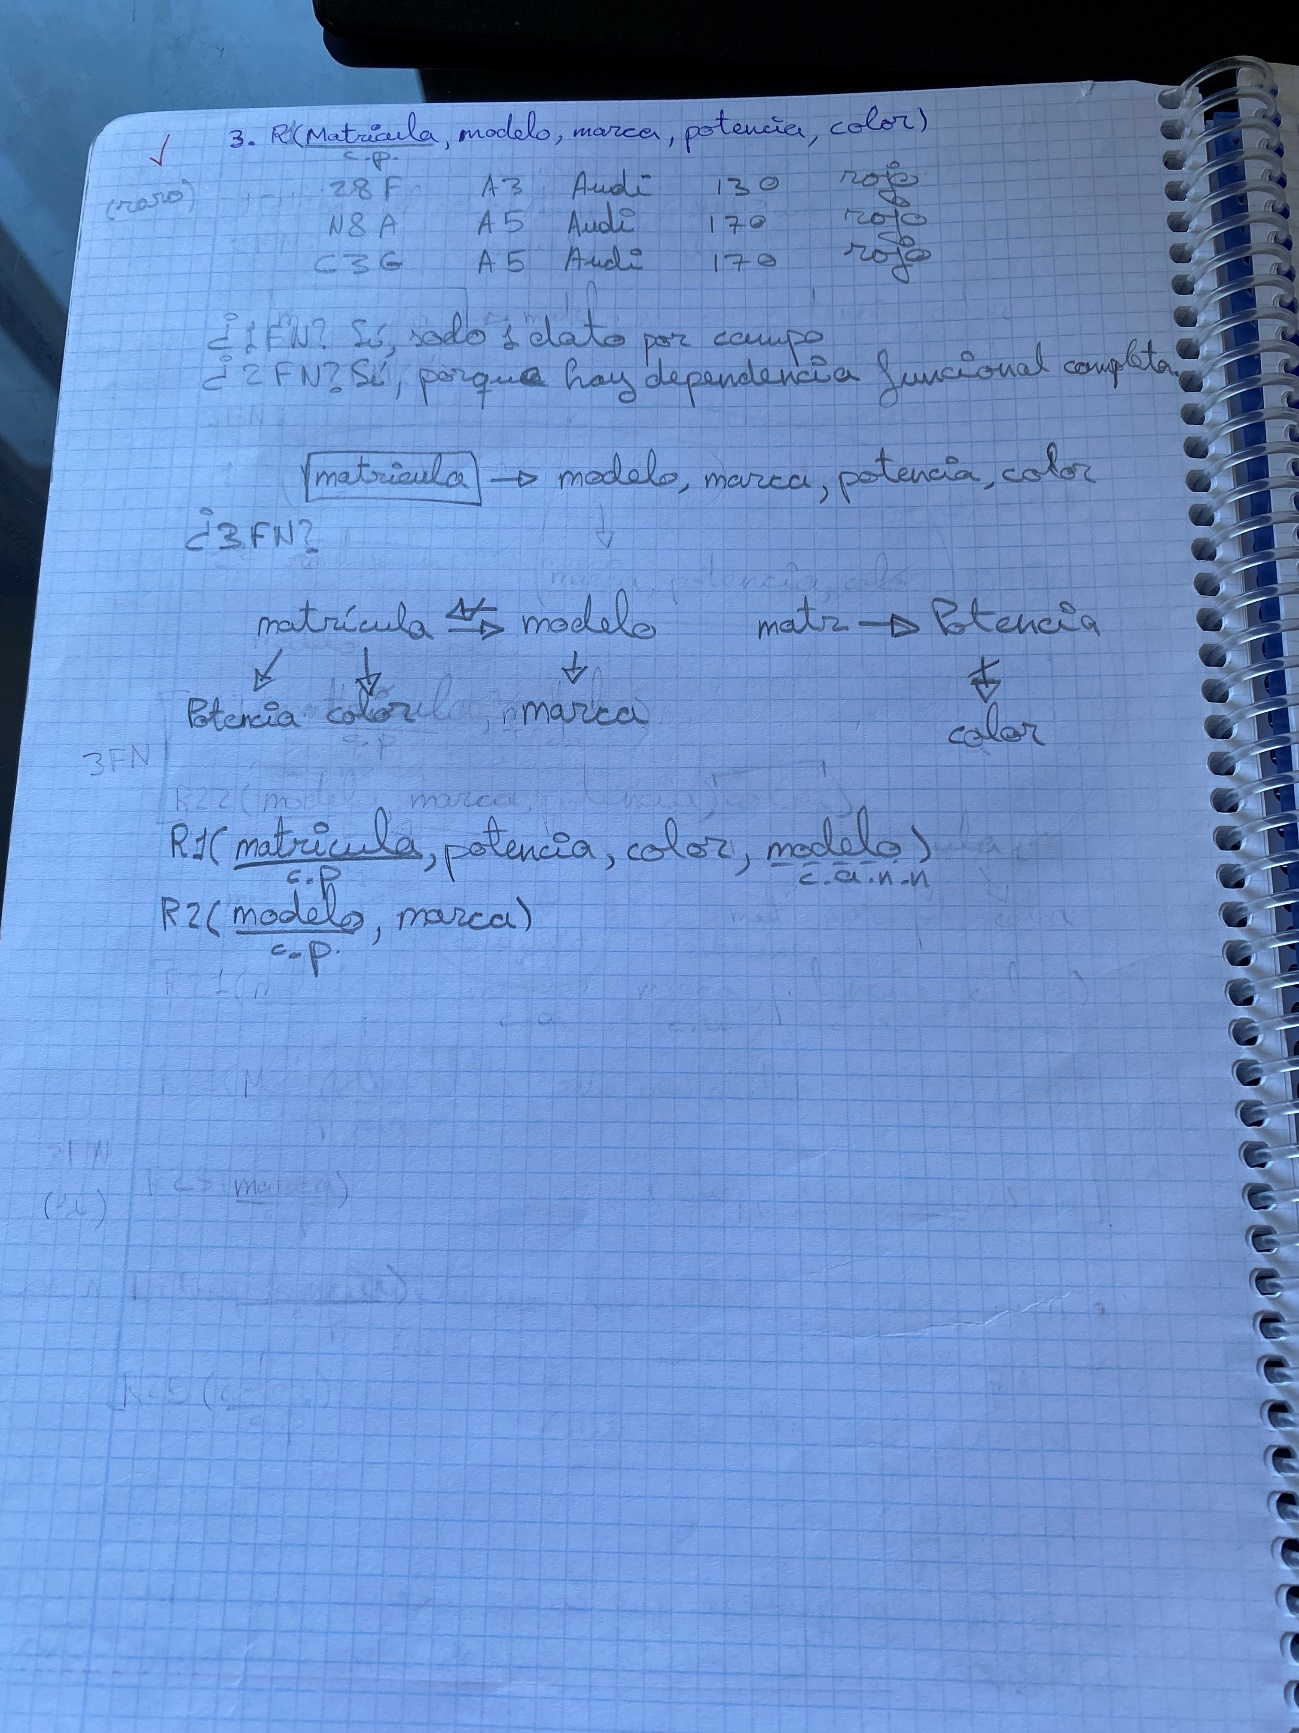 3. R(Matrícula, modelo, marca, potencia, color)
c.p.
(raro) 28F A3 Audi 130 rojo
N8A A5 Audi 170 rojo
C3G A5 Audi 170 rojo
¿1FN? Sí, sodo 1 dato por campo
¿2FN? Sí, porque hay dependencia funcional completa.
matrícula → modelo, marca, potencia, color
¿3FN?
matrícula modelo matr → Potencia
Potencia color marca color
3FN
R1(matrícula, potencia, color, modelo)
c.p c.a.n.n
R2(modelo, marca)
c.p.